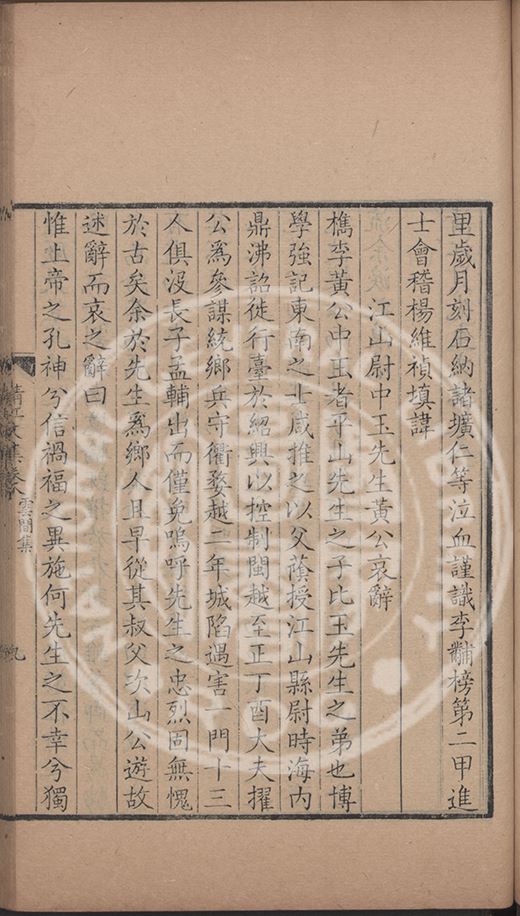 里歲月刻石納諸壙仁等泣血謹識李黼榜第二甲進
士會稽楊維禎填諱
江山尉中玉先生黃公哀辭
檇李黃公中玉者平山先生之子比玉先生之弟也博
學強記東南之士咸推之以父蔭授江山縣尉時海內
鼎沸詔徙行臺於紹興以控制閩越至正丁酉大夫擢
公爲參謀統鄉兵守衢婺越二年城陷遇害一門十三
人俱沒長子孟輔出而僅免嗚呼先生之忠烈固無愧
於古矣余於先生爲鄉人且早從其叔父次山公遊故
述辭而哀之辭曰
惟上帝之孔神兮信禍福之異施何先生之不幸兮獨
清江文集卷八 雲間集
九